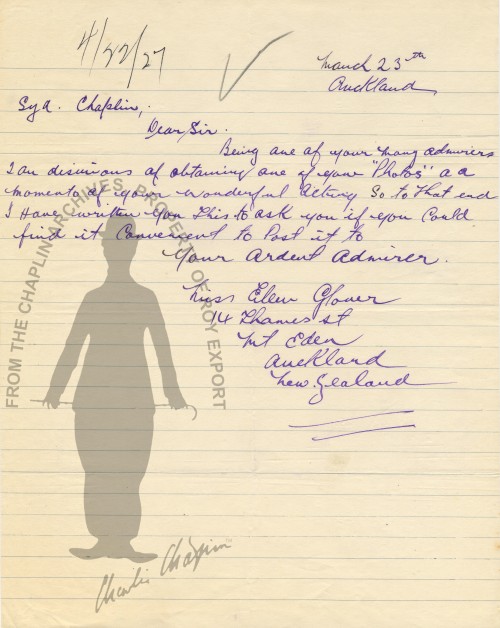 4/22/27
March 23th
Auckland
Syd. Chaplin,
Dear Sir.
Being one of your many admirers
I am desirous of obtaining one of your "Photos" as a
momento of your wonderful Acting So to that end
I Have written you this to ask you if you Could
find it Convenient to Post it to
Your Ardent Admirer.
Miss Eileen Glover
14 Thames st
Mt Eden
Auckland
New Zealand
FROM THE CHAPLIN ARCHIVES, PROPERTY OF ROY EXPORT
Charlie Chaplin